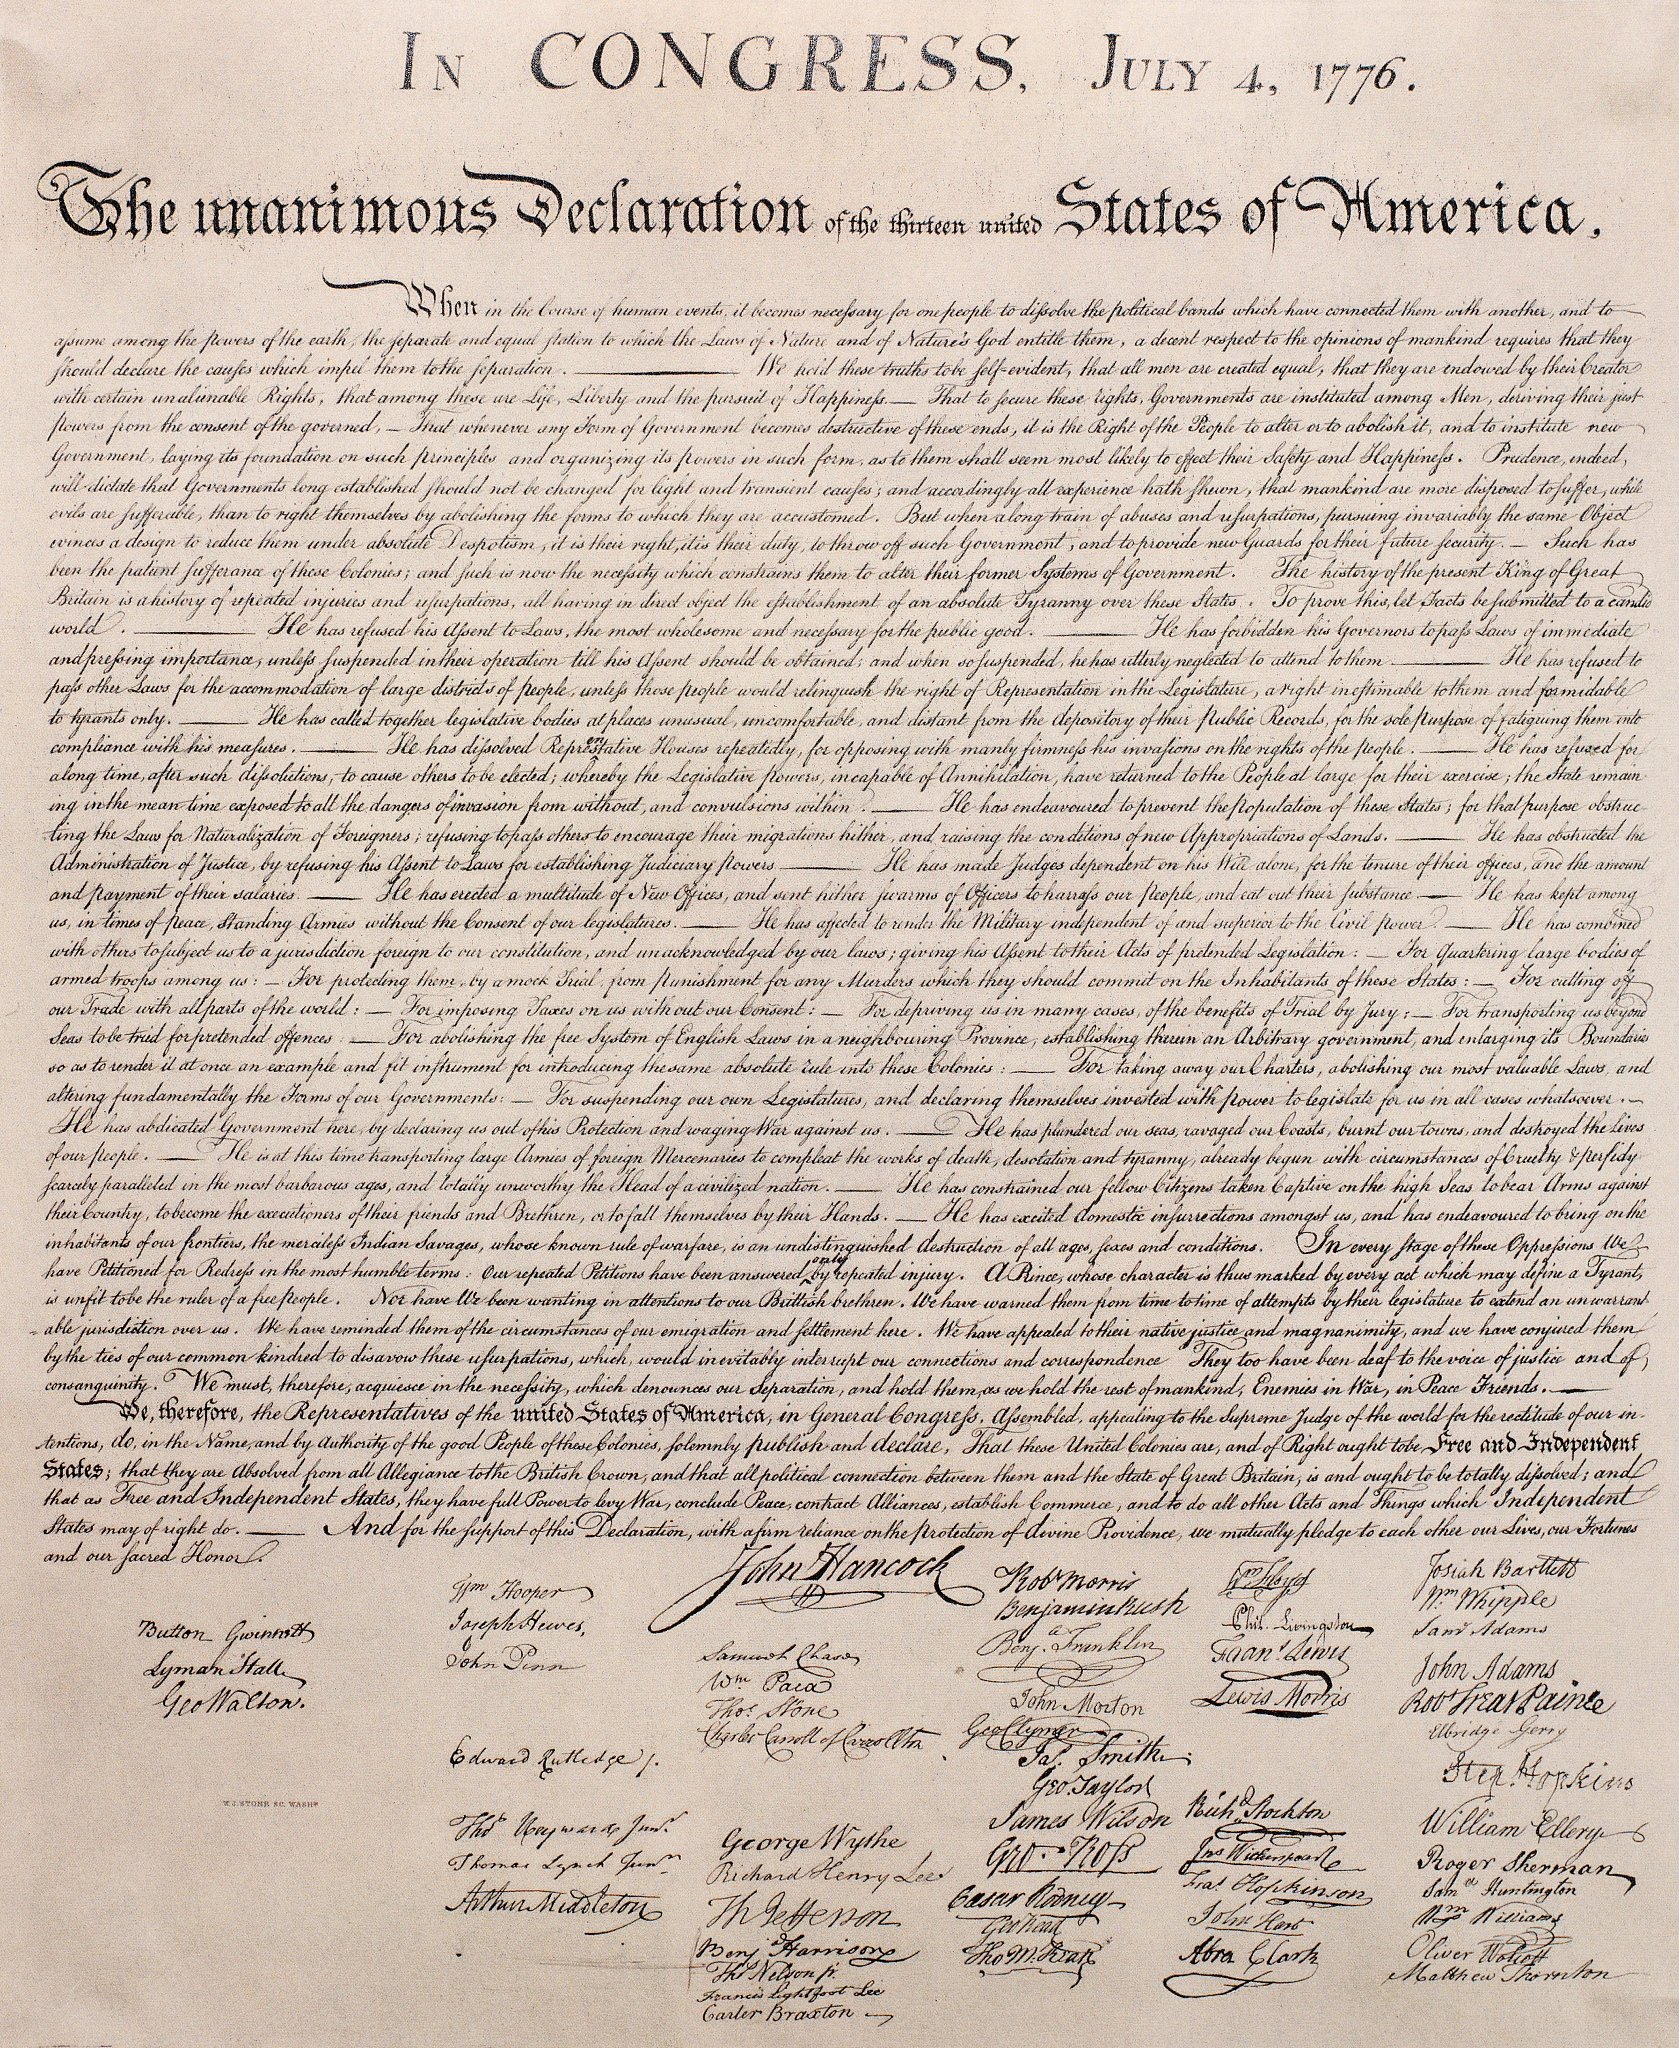 In CONGRESS, July 4, 1776.
The unanimous Declaration of the thirteen united States of America,
When in the Course of human events, it becomes necessary for one people to dissolve the political bands which have connected them with another, and to
assume among the powers of the earth, the separate and equal station to which the Laws of Nature and of Nature's God entitle them, a decent respect to the opinions of mankind requires that they
should declare the causes which impel them to the separation. — We hold these truths to be self-evident, that all men are created equal, that they are endowed by their Creator
with certain unalienable Rights, that among these are Life, Liberty and the pursuit of Happiness. — That to secure these rights, Governments are instituted among Men, deriving their just
powers from the consent of the governed, — That whenever any Form of Government becomes destructive of these ends, it is the Right of the People to alter or to abolish it, and to institute new
Government, laying its foundation on such principles and organizing its powers in such form, as to them shall seem most likely to effect their Safety and Happiness. Prudence, indeed,
will dictate that Governments long established should not be changed for light and transient causes; and accordingly all experience hath shewn, that mankind are more disposed to suffer, while
evils are sufferable, than to right themselves by abolishing the forms to which they are accustomed. But when a long train of abuses and usurpations, pursuing invariably the same Object
evinces a design to reduce them under absolute Despotism, it is their right, it is their duty, to throw off such Government, and to provide new Guards for their future security. — Such has
been the patient sufferance of these Colonies; and such is now the necessity which constrains them to alter their former Systems of Government. The history of the present King of Great
Britain is a history of repeated injuries and usurpations, all having in direct object the establishment of an absolute Tyranny over these States. To prove this, let Facts be submitted to a candid
world. — He has refused his Assent to Laws, the most wholesome and necessary for the public good. — He has forbidden his Governors to pass Laws of immediate
and pressing importance, unless suspended in their operation till his Assent should be obtained; and when so suspended, he has utterly neglected to attend to them — He has refused to
pass other Laws for the accommodation of large districts of people, unless those people would relinquish the right of Representation in the Legislature, a right inestimable to them and formidable
to tyrants only. — He has called together legislative bodies at places unusual, uncomfortable, and distant from the depository of their Public Records, for the sole purpose of fatiguing them into
compliance with his measures. — He has dissolved Representative Houses repeatedly, for opposing with manly firmness his invasions on the rights of the people. — He has refused for
a long time, after such dissolutions, to cause others to be elected; whereby the Legislative powers, incapable of Annihilation, have returned to the People at large for their exercise; the State remain
ing in the mean time exposed to all the dangers of invasion from without, and convulsions within. — He has endeavoured to prevent the population of these States; for that purpose obstruc-
ting the Laws for Naturalization of Foreigners; refusing to pass others to encourage their migrations hither, and raising the conditions of new Appropriations of Lands. — He has obstructed the
Administration of Justice, by refusing his Assent to Laws for establishing Judiciary powers — He has made Judges dependent on his Will alone, for the tenure of their offices, and the amount
and payment of their salaries. — He has erected a multitude of New Offices, and sent hither swarms of Officers to harrass our people, and eat out their substance — He has kept among
us, in times of peace, Standing Armies without the Consent of our legislatures. — He has affected to render the Military independent of and superior to the Civil power. — He has combined
with others to subject us to a jurisdiction foreign to our constitution, and unacknowledged by our laws; giving his Assent to their Acts of pretended Legislation: — For Quartering large bodies of
armed troops among us: — For protecting them, by a mock Trial, from punishment for any Murders which they should commit on the Inhabitants of these States: — For cutting off
our Trade with all parts of the world: — For imposing Taxes on us without our Consent: — For depriving us in many cases, of the benefits of Trial by Jury: — For transporting us beyond
Seas to be tried for pretended offences — For abolishing the free System of English Laws in a neighbouring Province, establishing therein an Arbitrary government, and enlarging its Boundaries
so as to render it at once an example and fit instrument for introducing the same absolute rule into these Colonies: — For taking away our Charters, abolishing our most valuable Laws, and
altering fundamentally the Forms of our Governments: — For suspending our own Legislatures, and declaring themselves invested with power to legislate for us in all cases whatsoever. —
He has abdicated Government here, by declaring us out of his Protection and waging War against us. — He has plundered our seas, ravaged our Coasts, burnt our towns, and destroyed the lives
of our people. — He is at this time transporting large Armies of foreign Mercenaries to compleat the works of death, desolation and tyranny, already begun with circumstances of Cruelty & perfidy
scarcely paralleled in the most barbarous ages, and totally unworthy the Head of a civilized nation. — He has constrained our fellow Citizens taken Captive on the high Seas to bear Arms against
their Country, to become the executioners of their friends and Brethren, or to fall themselves by their Hands. — He has excited domestic insurrections amongst us, and has endeavoured to bring on the
inhabitants of our frontiers, the merciless Indian Savages, whose known rule of warfare, is an undistinguished destruction of all ages, sexes and conditions. In every stage of these Oppressions We
have Petitioned for Redress in the most humble terms: Our repeated Petitions have been answered only by repeated injury. A Prince, whose character is thus marked by every act which may define a Tyrant,
is unfit to be the ruler of a free people. Nor have We been wanting in attentions to our Brittish brethren. We have warned them from time to time of attempts by their legislature to extend an unwarrant-
able jurisdiction over us. We have reminded them of the circumstances of our emigration and settlement here. We have appealed to their native justice and magnanimity, and we have conjured them
by the ties of our common kindred to disavow these usurpations, which, would inevitably interrupt our connections and correspondence They too have been deaf to the voice of justice and of
consanguinity. We must, therefore, acquiesce in the necessity, which denounces our Separation, and hold them, as we hold the rest of mankind, Enemies in War, in Peace Friends. —
We, therefore, the Representatives of the united States of America, in General Congress, Assembled, appealing to the Supreme Judge of the world for the rectitude of our in-
tentions, do, in the Name, and by Authority of the good People of these Colonies, solemnly publish and declare, That these United Colonies are, and of Right ought to be Free and Independent
States; that they are Absolved from all Allegiance to the British Crown, and that all political connection between them and the State of Great Britain, is and ought to be totally dissolved; and
that as Free and Independent States, they have full Power to levy War, conclude Peace, contract Alliances, establish Commerce, and to do all other Acts and Things which Independent
States may of right do. — And for the support of this Declaration, with a firm reliance on the protection of divine Providence, we mutually pledge to each other our Lives, our Fortunes
and our sacred Honor.
Button Gwinnett
Lyman Hall
Geo Walton.
W. J. STONE SC. WASHn
Wm Hooper
Joseph Hewes,
John Penn
Edward Rutledge /.
Thos Heyward Junr.
Thomas Lynch Junr
Arthur Middleton
John Hancock
Samuel Chase
Wm Paca
Thos. Stone
Charles Carroll of Carrollton
George Wythe
Richard Henry Lee
Th Jefferson
Benj Harrison
Thos Nelson jr.
Francis Lightfoot Lee
Carter Braxton
Robt Morris
Benjamin Rush
Benja. Franklin
John Morton
Geo Clymer
Jas. Smith
Geo. Taylor
James Wilson
Geo. Ross
Caesar Rodney
Geo Read
Tho M:Kean
Wm Floyd
Phil. Livingston
Frans. Lewis
Lewis Morris
Richd. Stockton
Jno Witherspoon
Fras. Hopkinson
John Hart
Abra Clark
Josiah Bartlett
Wm. Whipple
Saml Adams
John Adams
Robt Treat Paine
Elbridge Gerry
Step. Hopkins
William Ellery
Roger Sherman
Saml Huntington
Wm Williams
Oliver Wolcott
Matthew Thornton